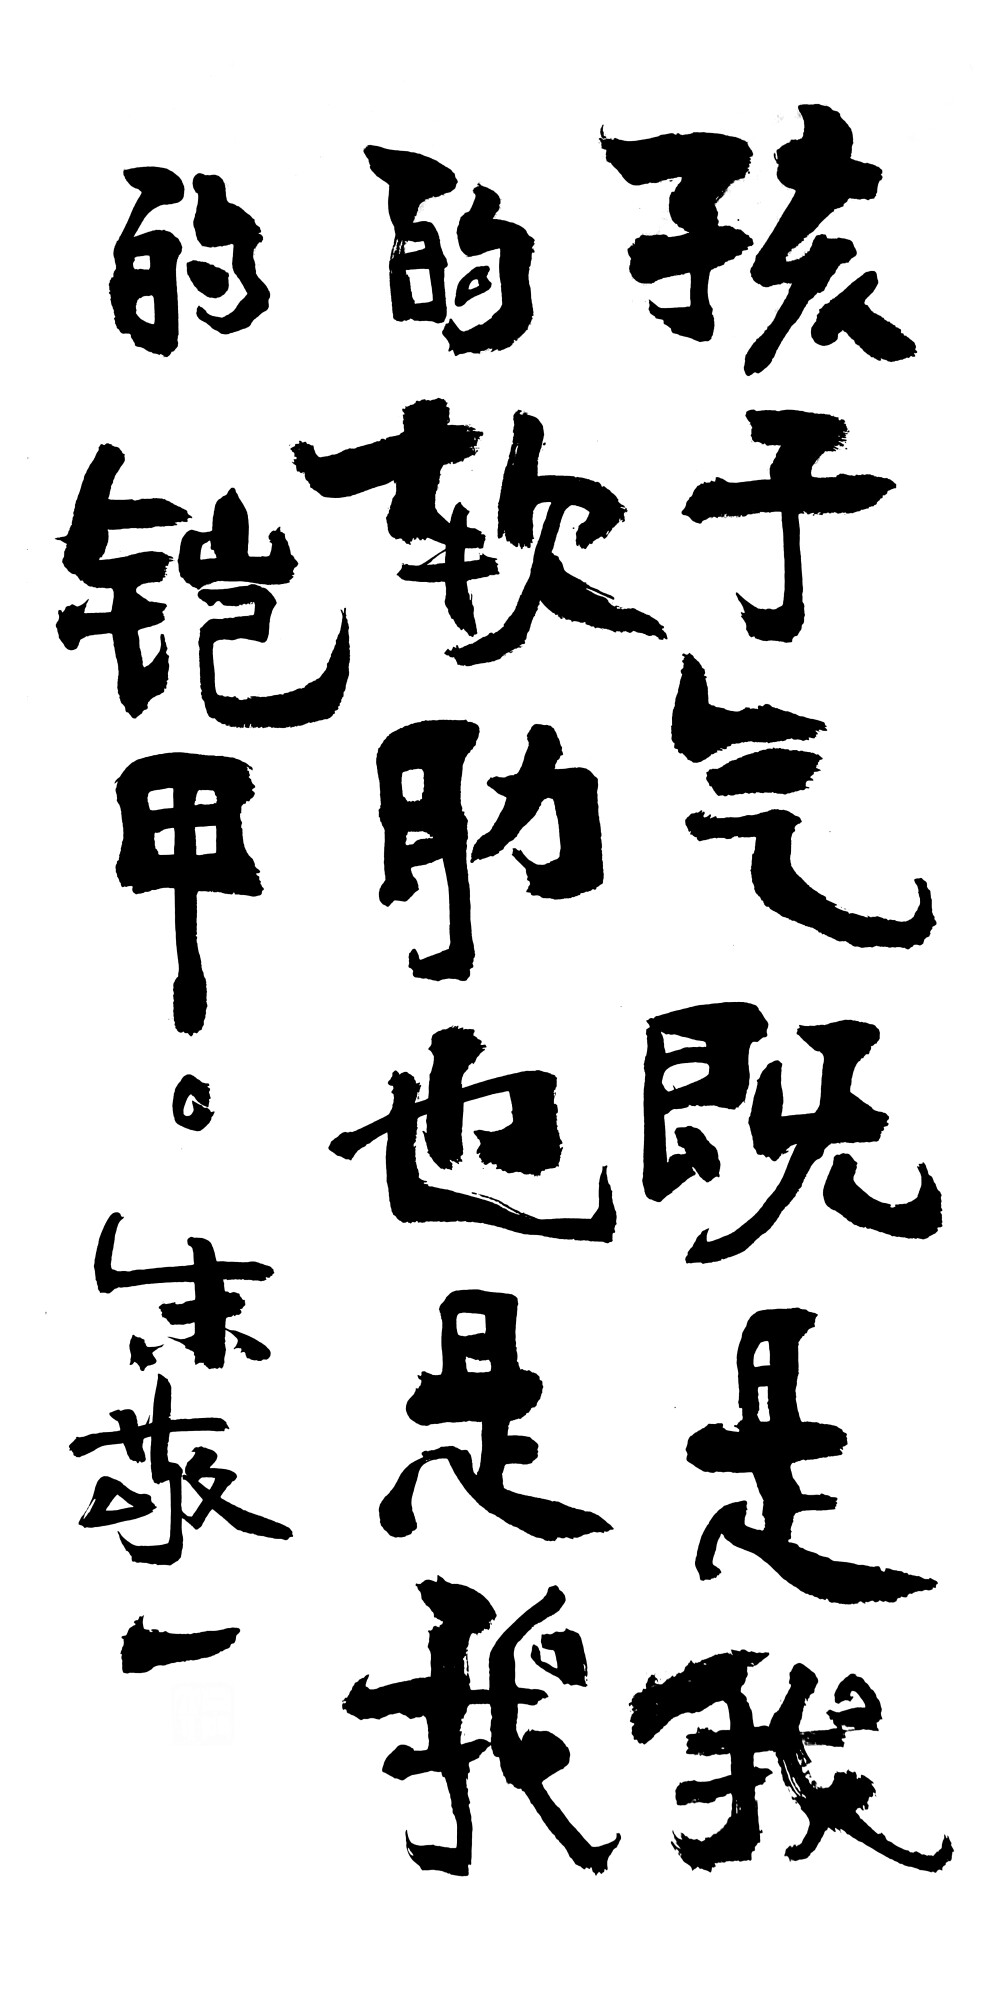 孩子气既是我
的软肋也是我
的铠甲。朱敬一